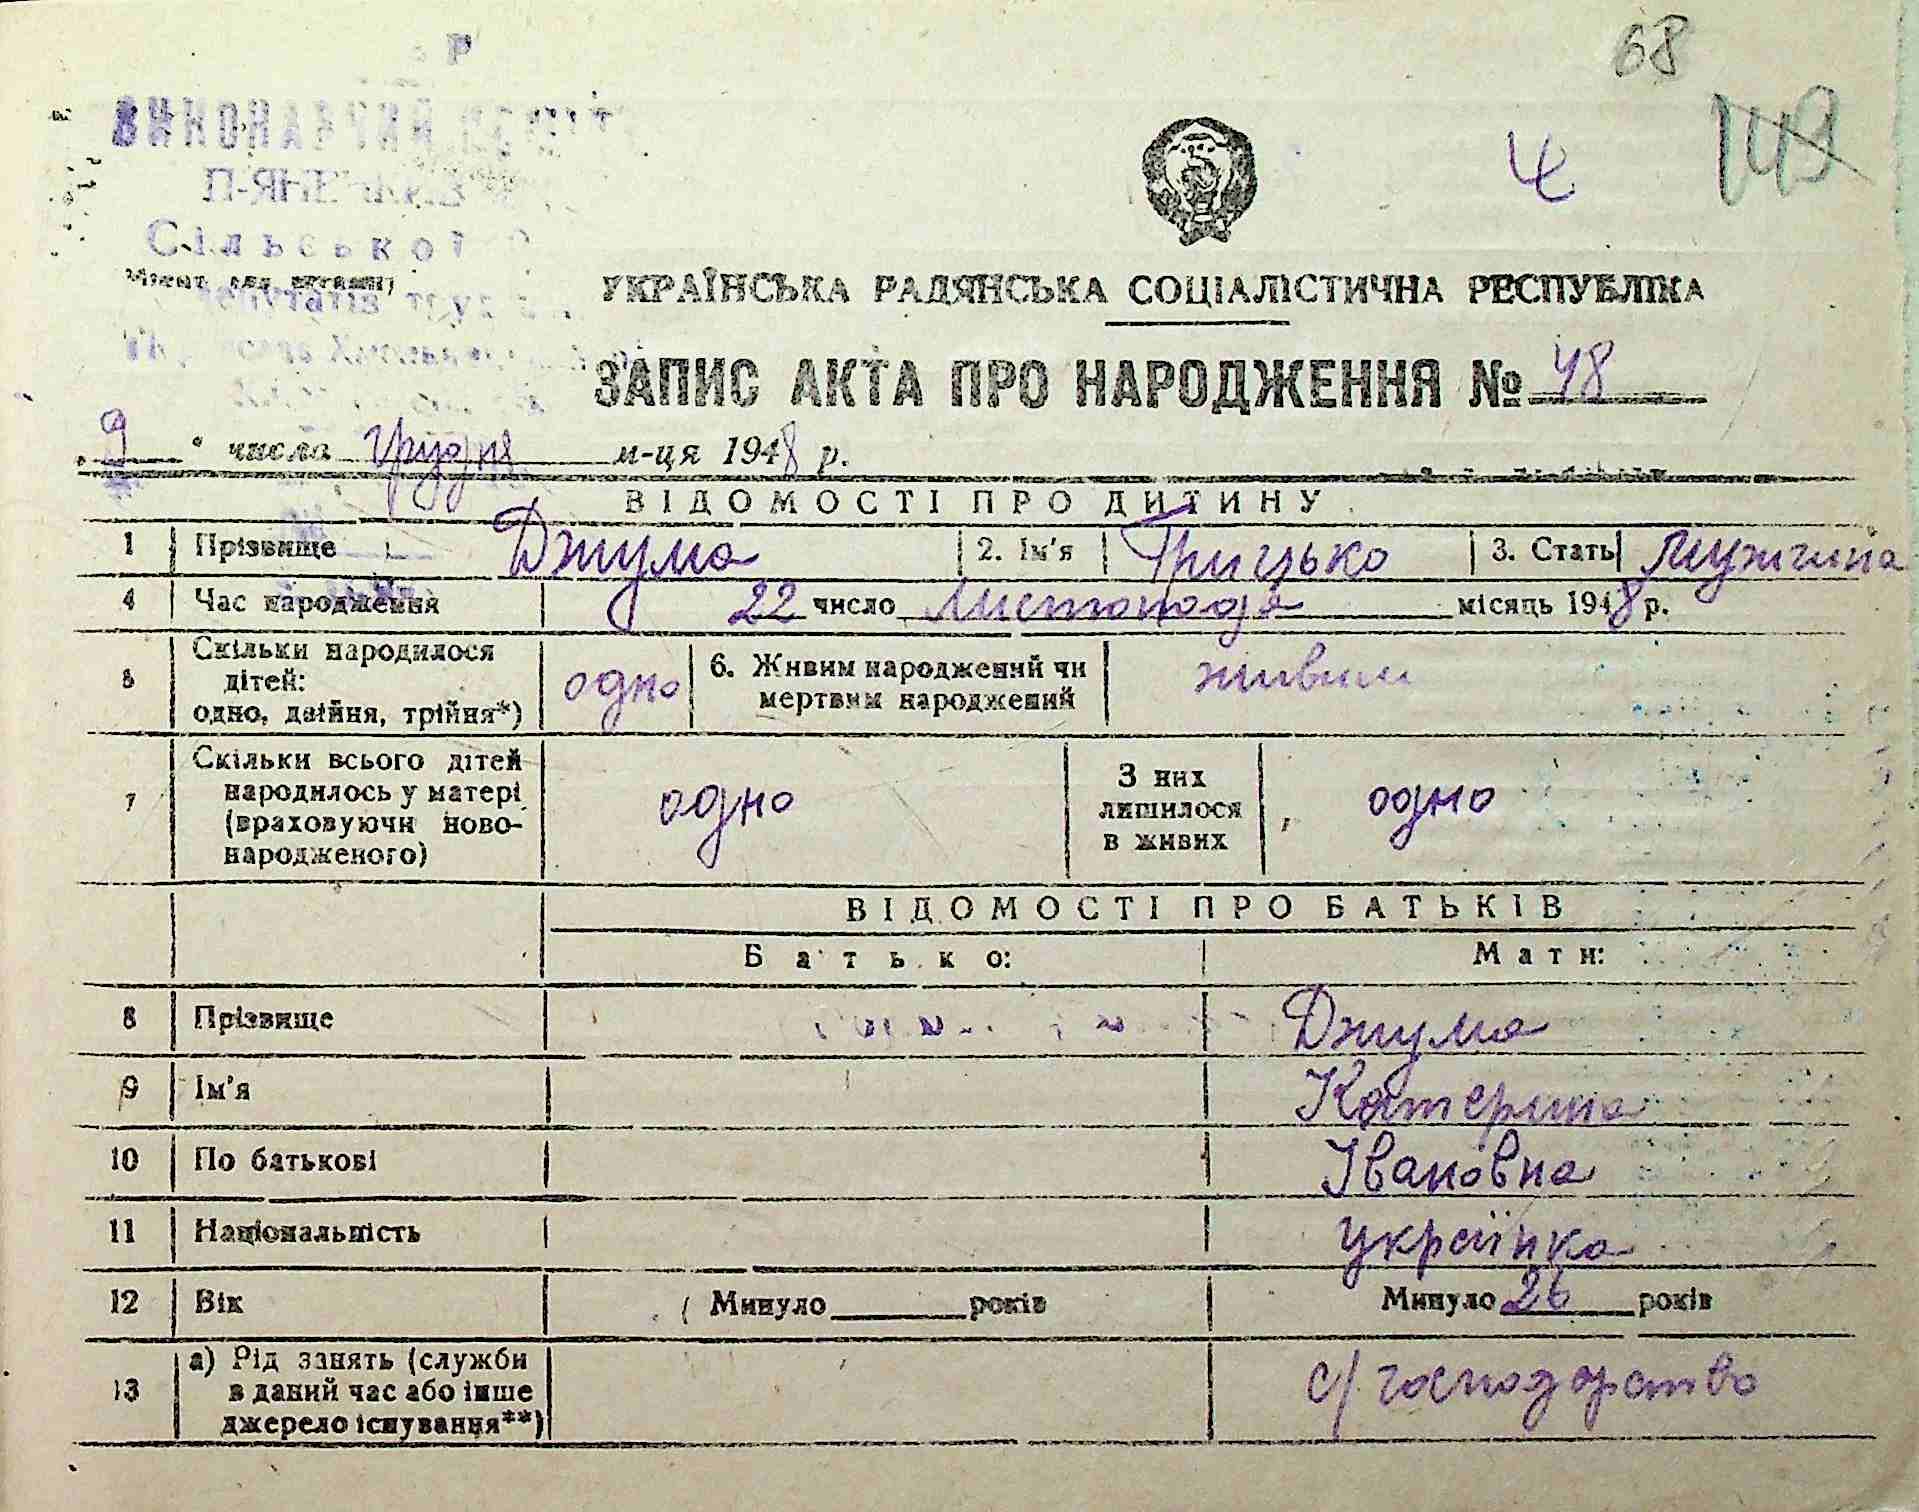 68
149
ВИКОНАВЧИЙ
Сільської
(Місце для штампу)
УКРАЇНСЬКА РАДЯНСЬКА СОЦІАЛІСТИЧНА РЕСПУБЛІКА
ЗАПИС АКТА ПРО НАРОДЖЕННЯ № 48
9 числа грудня м-ця 1948 р.
ВІДОМОСТІ ПРО ДИТИНУ
1 Прізвище Джума 2. Ім'я Грицько 3. Стать мужчина
4 Час народження 22 число Листопада місяць 1948 р.
5 Скільки народилося дітей: одно, двійня, трійня*) одно 6. Живим народжений чи мертвим народжений живим
7 Скільки всього дітей народилось у матері (враховуючи новонародженого) одно З них лишилося в живих одно
ВІДОМОСТІ ПРО БАТЬКІВ
Батько: Мати:
8 Прізвище Джума
9 Ім'я Катерина
10 По батькові Івановна
11 Національність українка
12 Вік Минуло ______ років Минуло 26 років
13 а) Рід занять (служби в даний час або інше джерело існування**) с/господарство